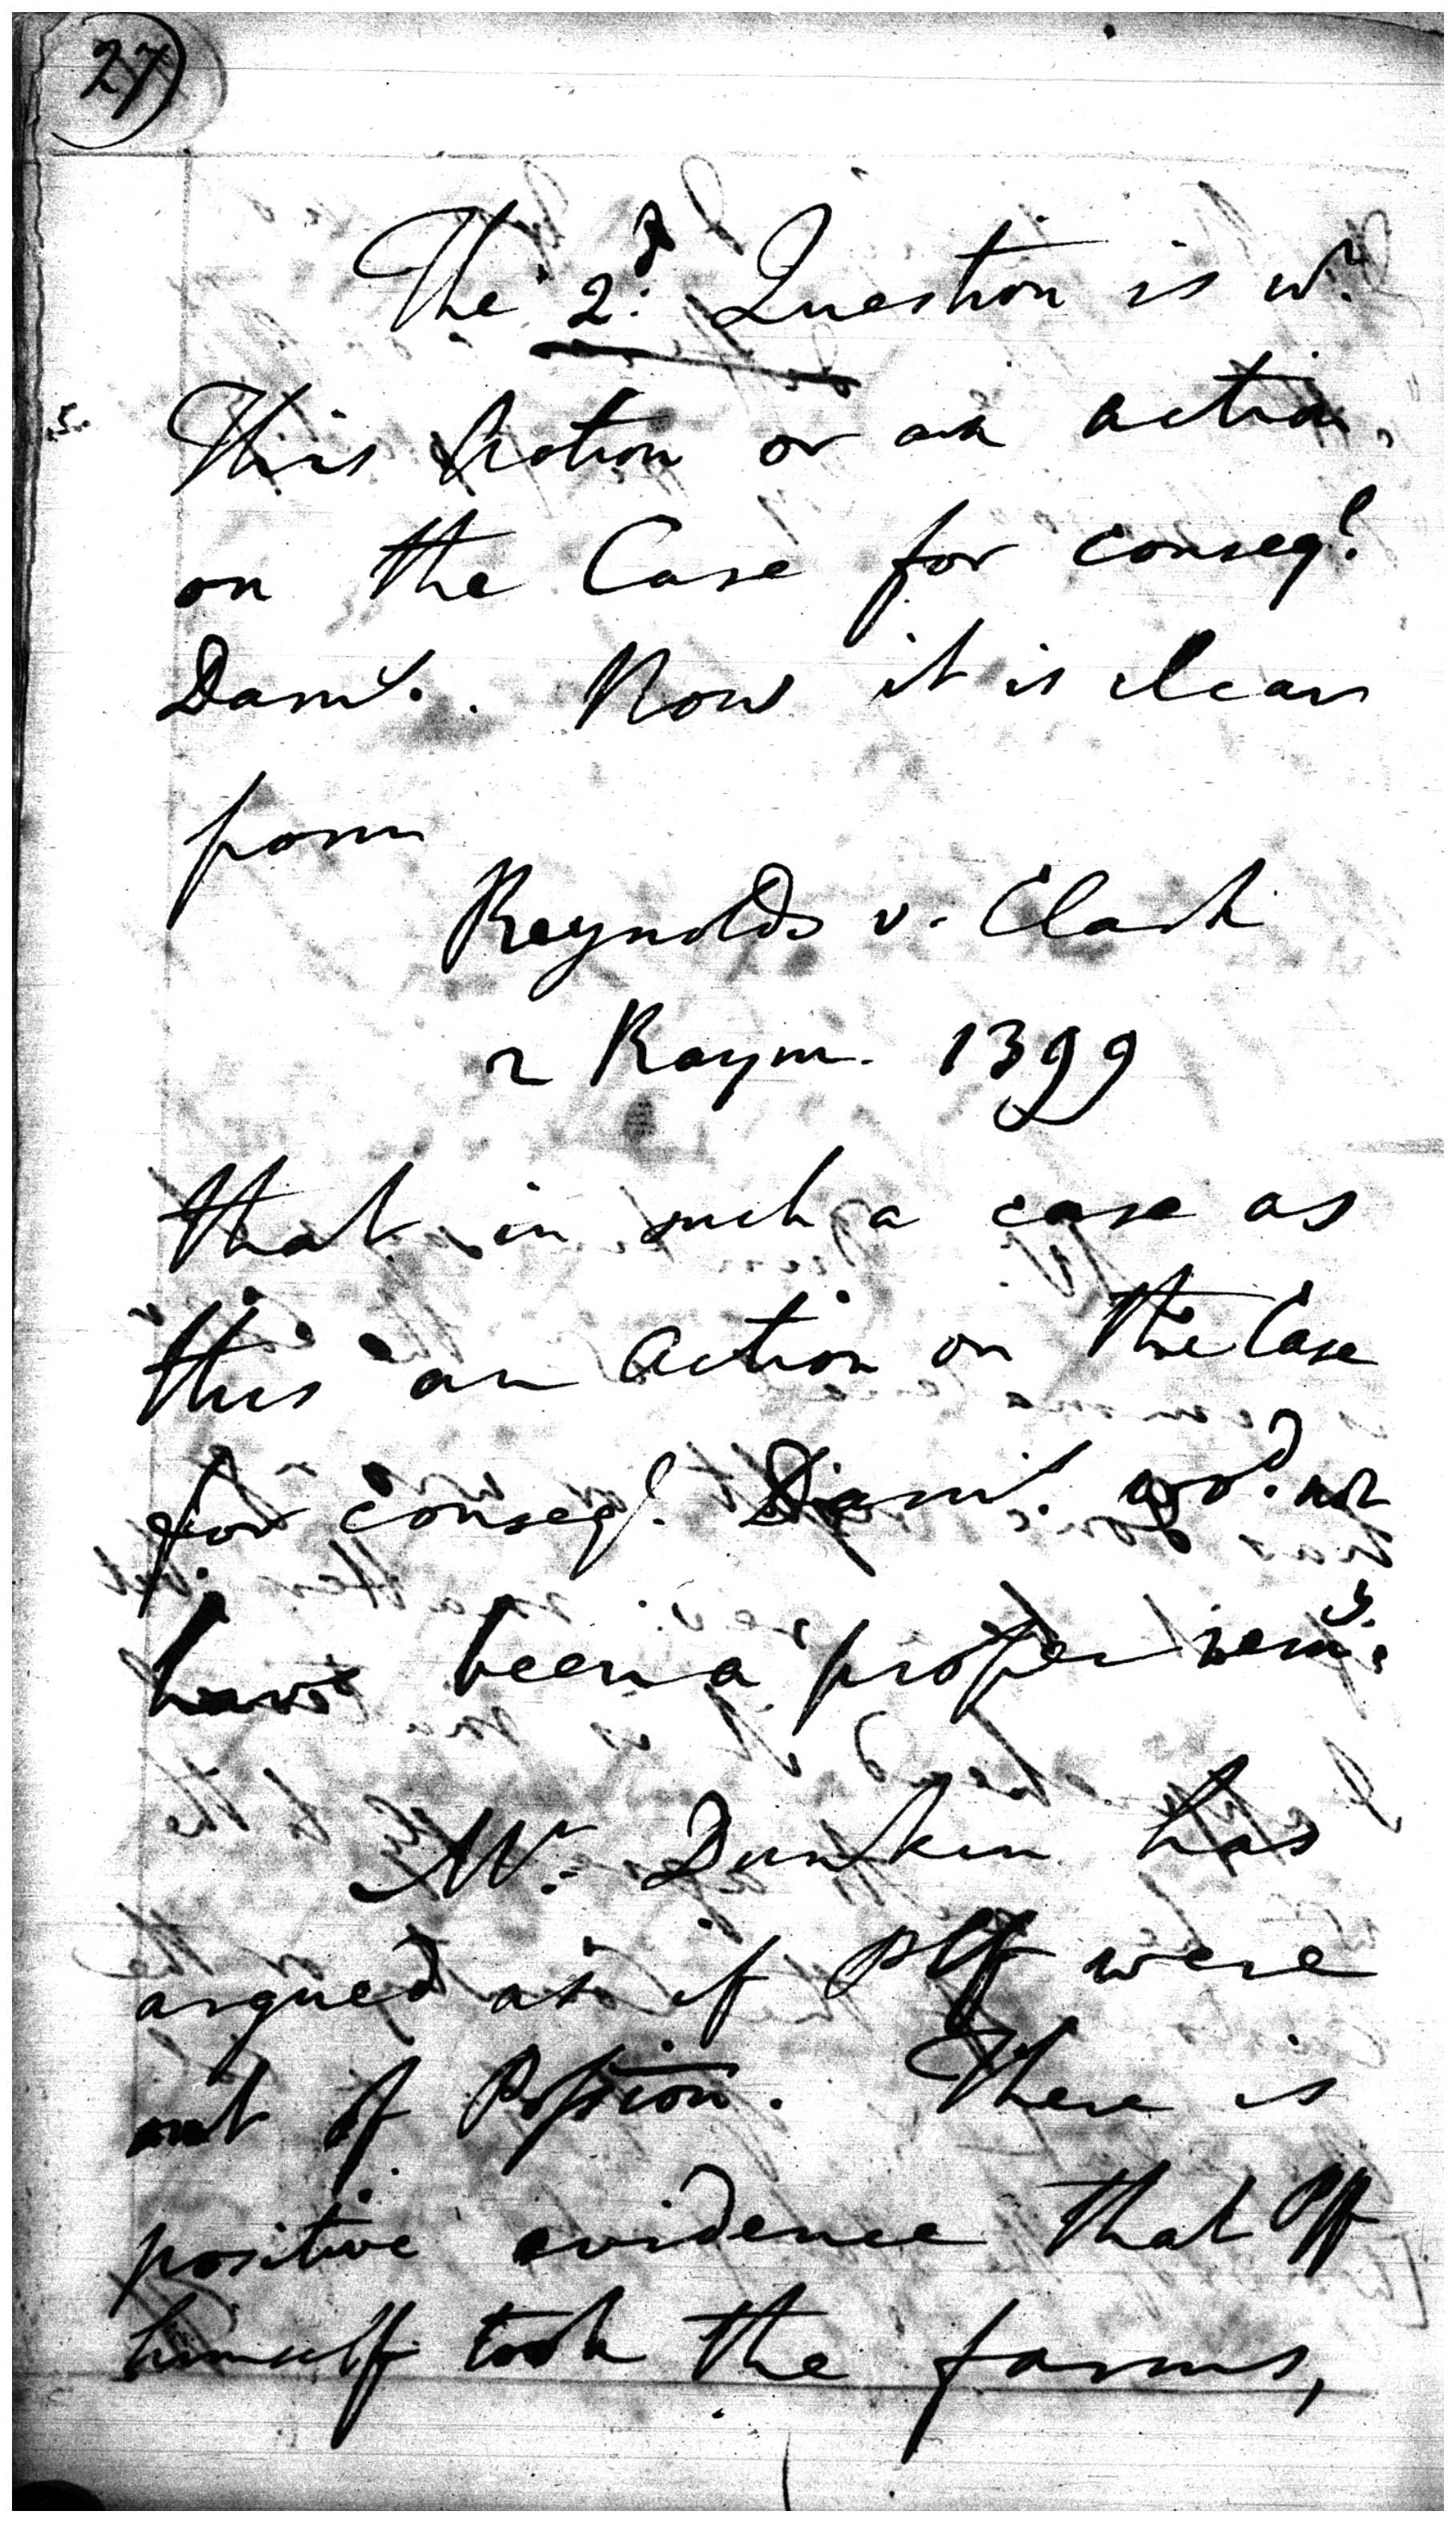 27
The 2.d Question is wr.
This Action or an action
on the Case for conseql.
Dams. . Now it is clear
from
Reynolds v. Clark
2 Raym. 1399
that in such a case as
this an action on the Case
for conseql. Dams. wod. not
have been a proper remy.
Mr. Dunkin has
argued as if Plff were
out of Possion. There is
positive evidence that Plff
himself took the farms,